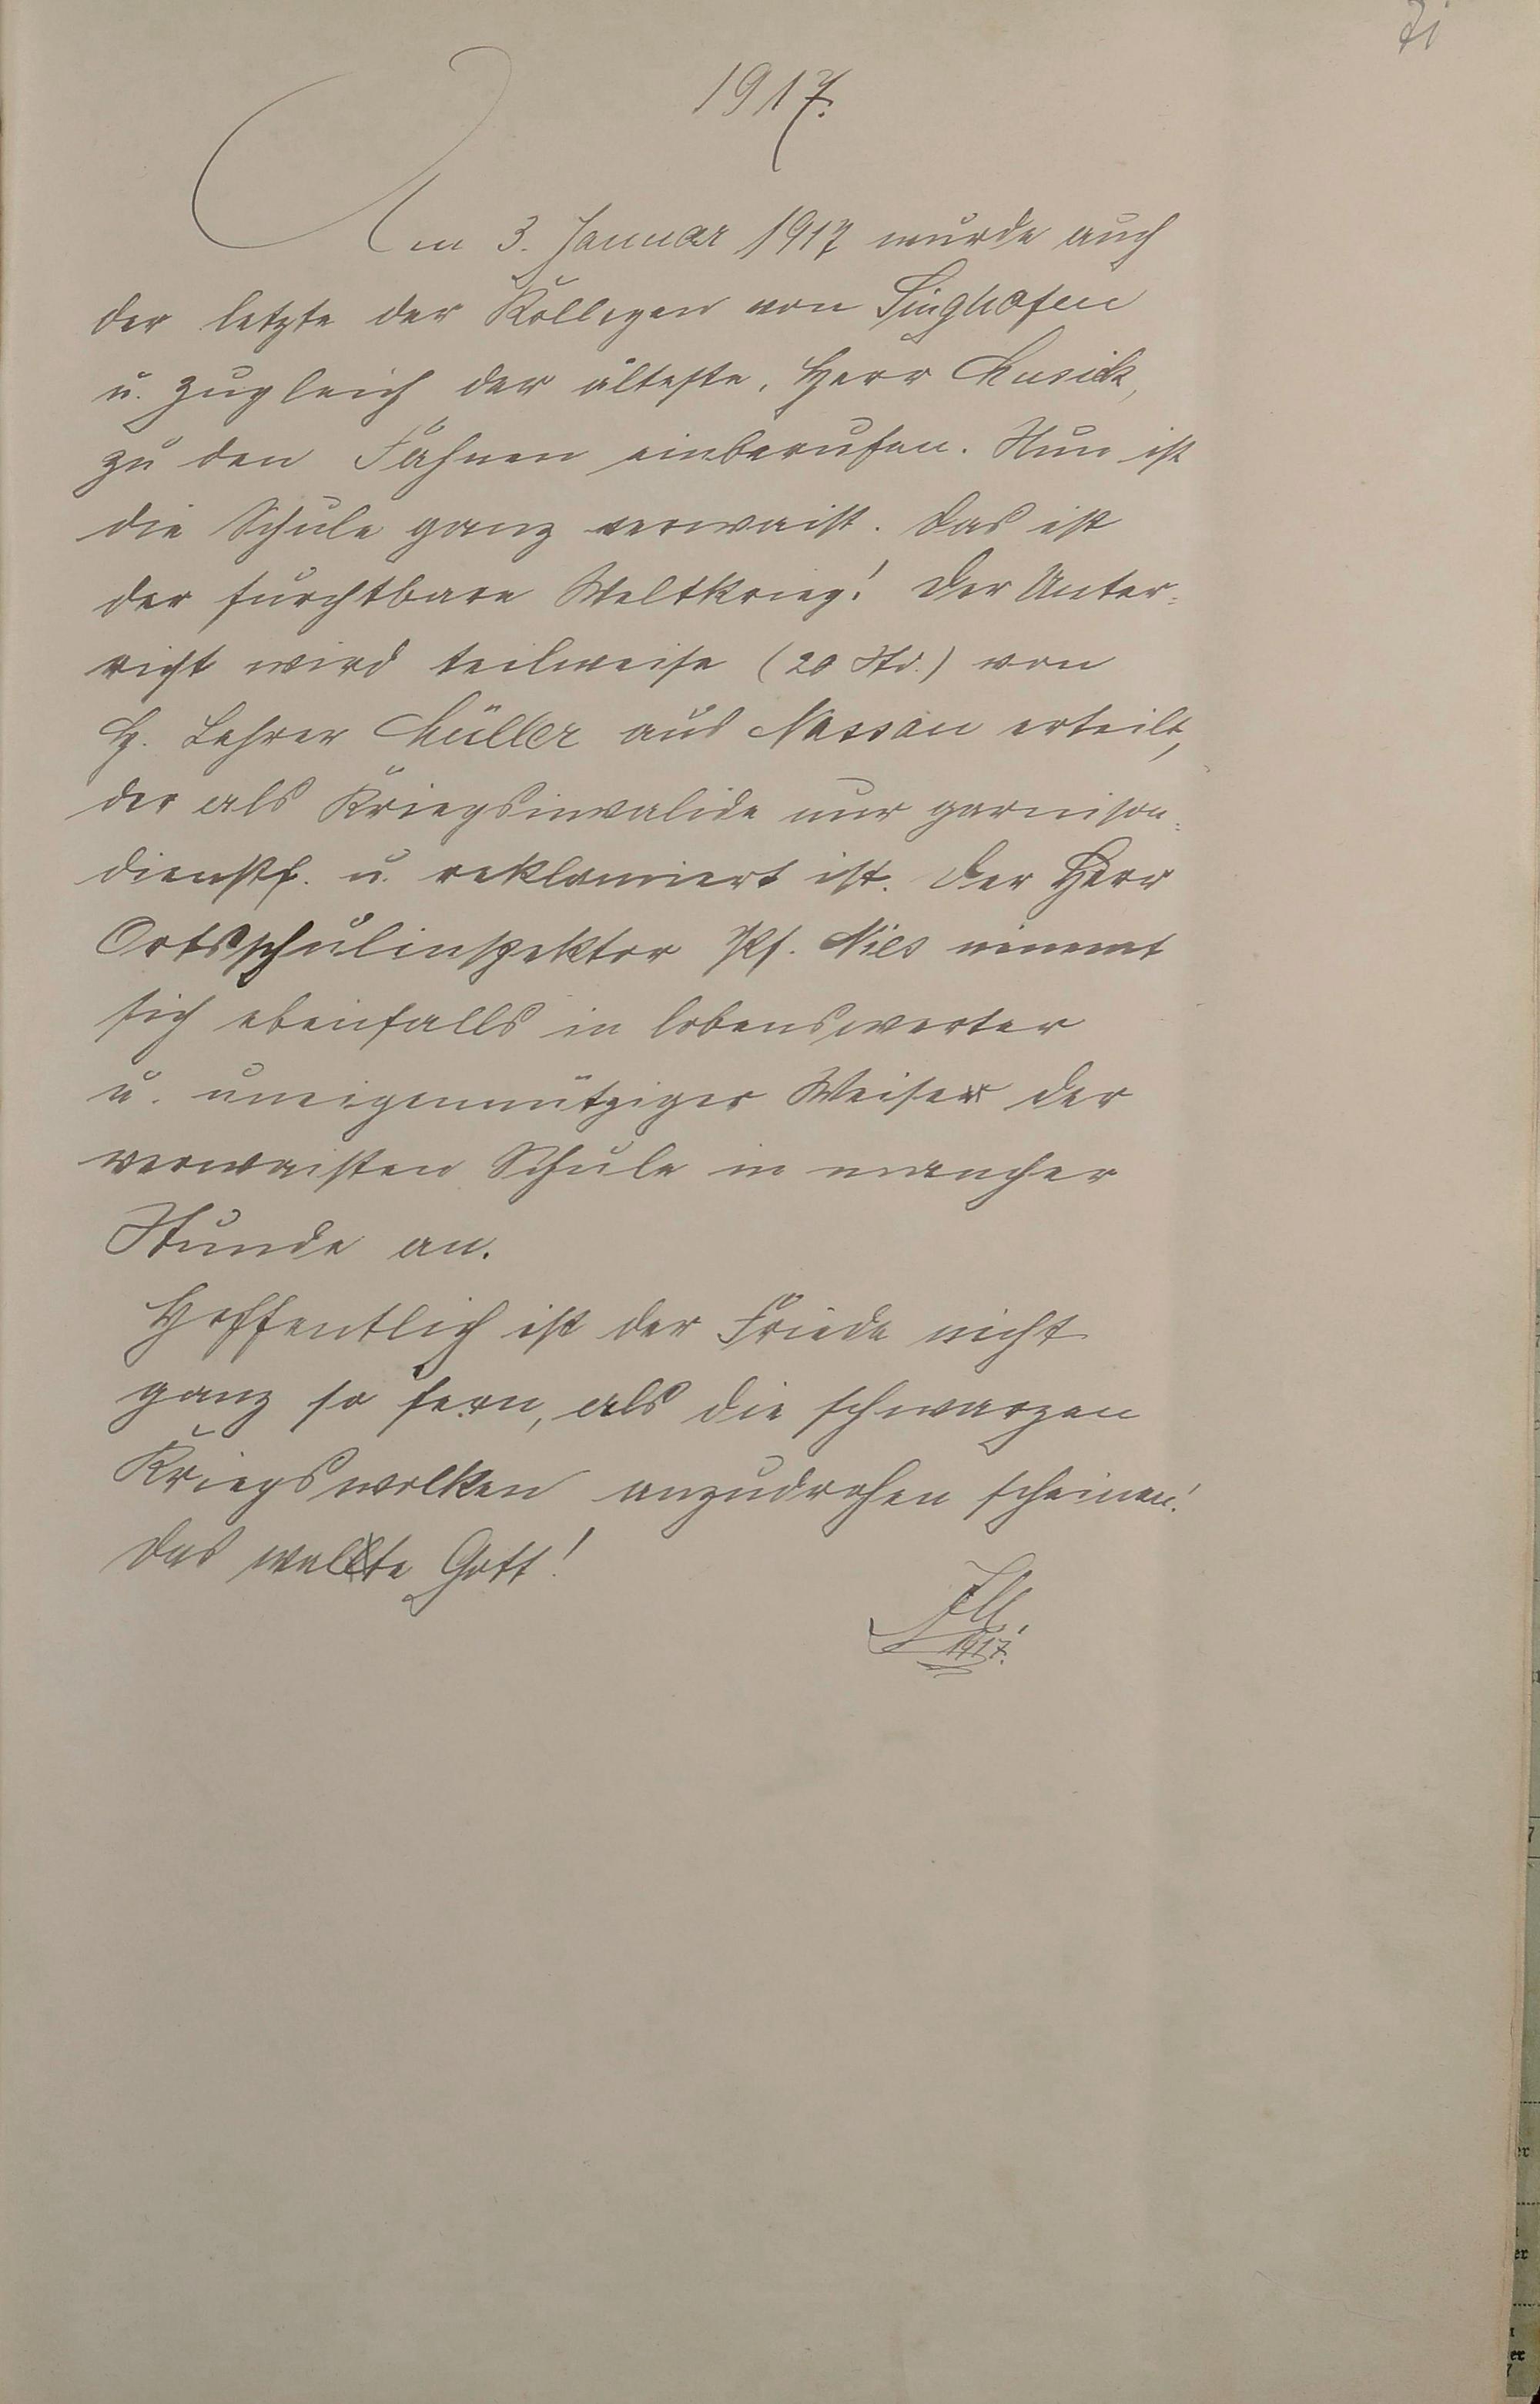 1917.
Am 3. Januar 1917 wurde auch
der letzte der Kollegen von Singhofen
u. zugleich der älteste, Herr Musick,
zu den Fahnen einberufen. Nun ist
die Schule ganz verwaist. Das ist
der furchtbare Weltkrieg! Der Unter=
richt wird teilweise (20 Std.) von
H. Lehrer Müller aus Nassau erteilt,
der als Kriegsinvalide nur garnison=
dienstf. u. reklamiert ist. Der Herr
Ortsschulinspektor Pf. Nies nimmt
sich ebenfalls in lobenswerter
u. uneigennütziger Weise der
verwaisten Schule in mancher
Stunde an.
Hoffentlich ist der Friede nicht
ganz so fern, als die schwarzen
Kriegswolken anzudrohen scheinen!
Das walte Gott!
1917.